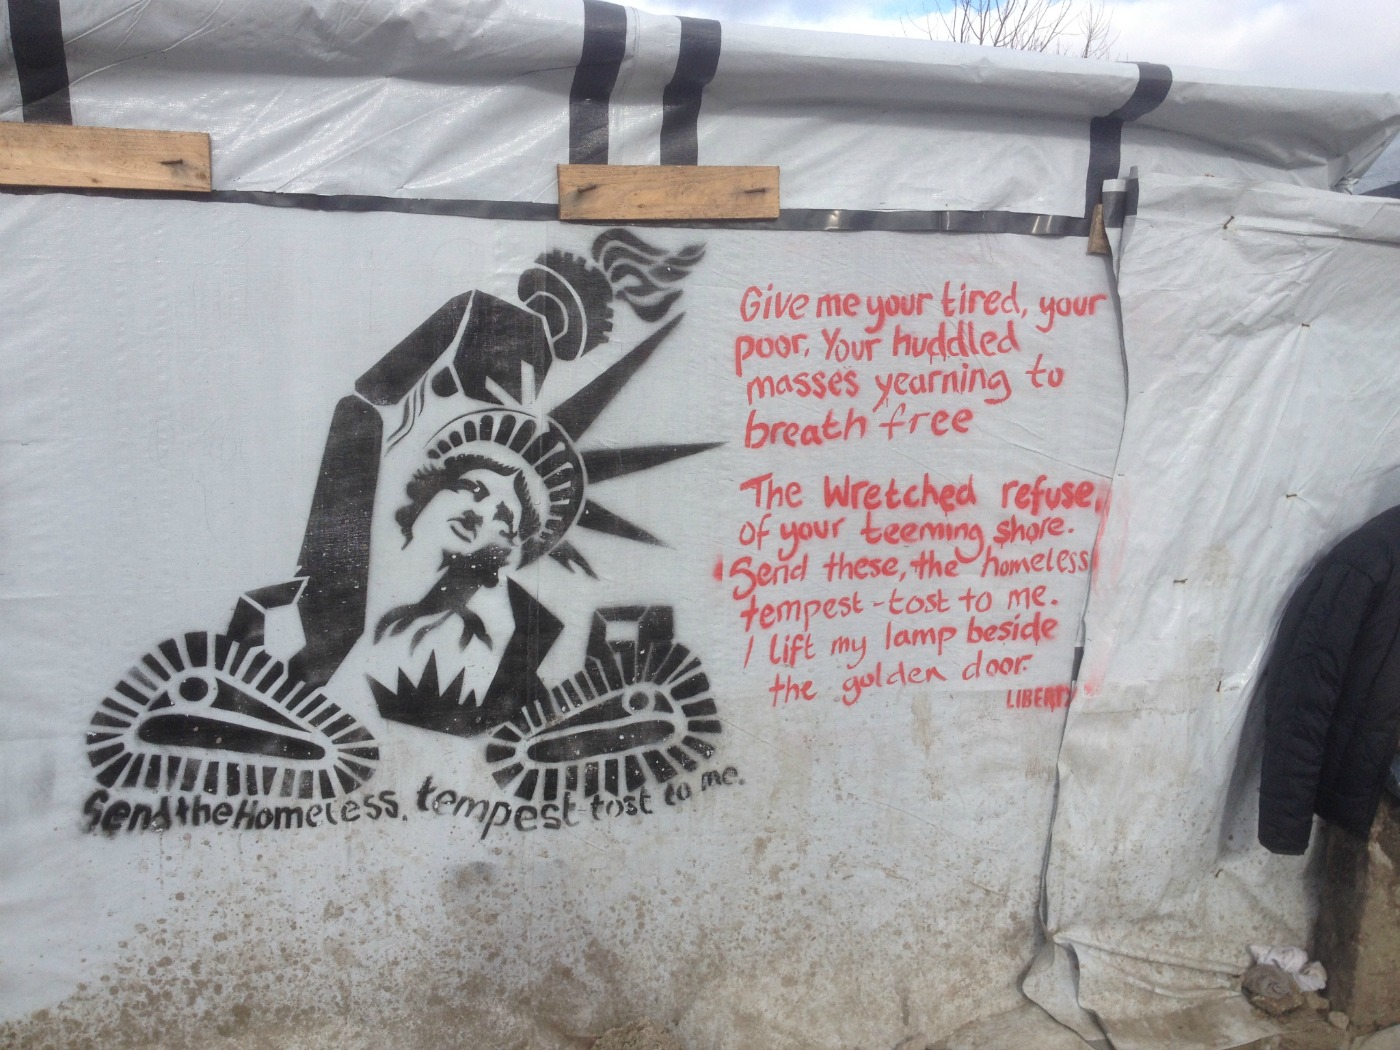 Give me your tired, your
poor, Your huddled
masses yearning to
breath free
The Wretched refuse,
of your teeming shore.
Send these, the homeless
tempest-tost to me.
I lift my lamp beside
the golden door.
LIBERTY
Send the Homeless, tempest-tost to me.